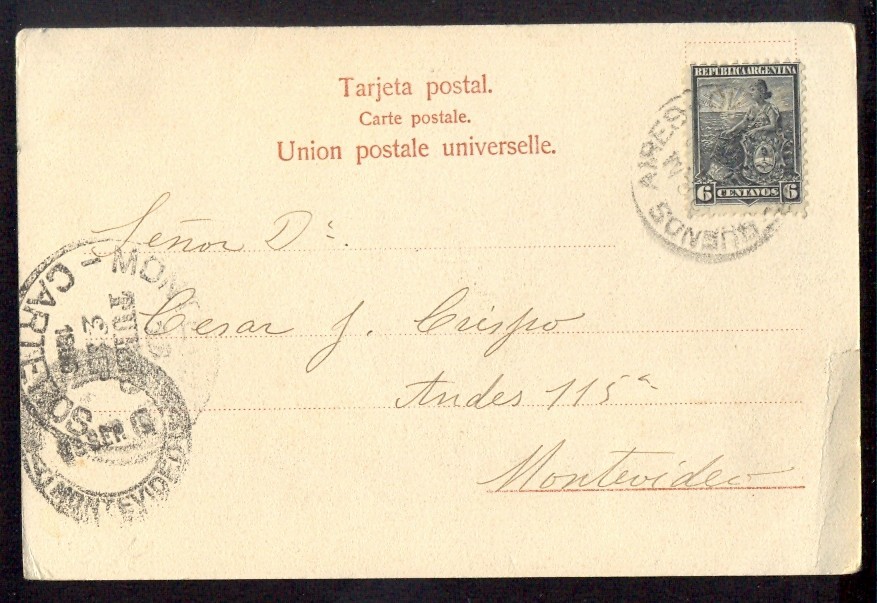 Tarjeta postal.
Carte postale.
Union postale universelle.
REPUBLICA ARGENTINA
6 CENTAVOS 6
BUENOS AIRES
Señor Dn.
Cesar J. Crispo
Andes 115a
Montevideo
CARTEROS
MONTEVIDEO